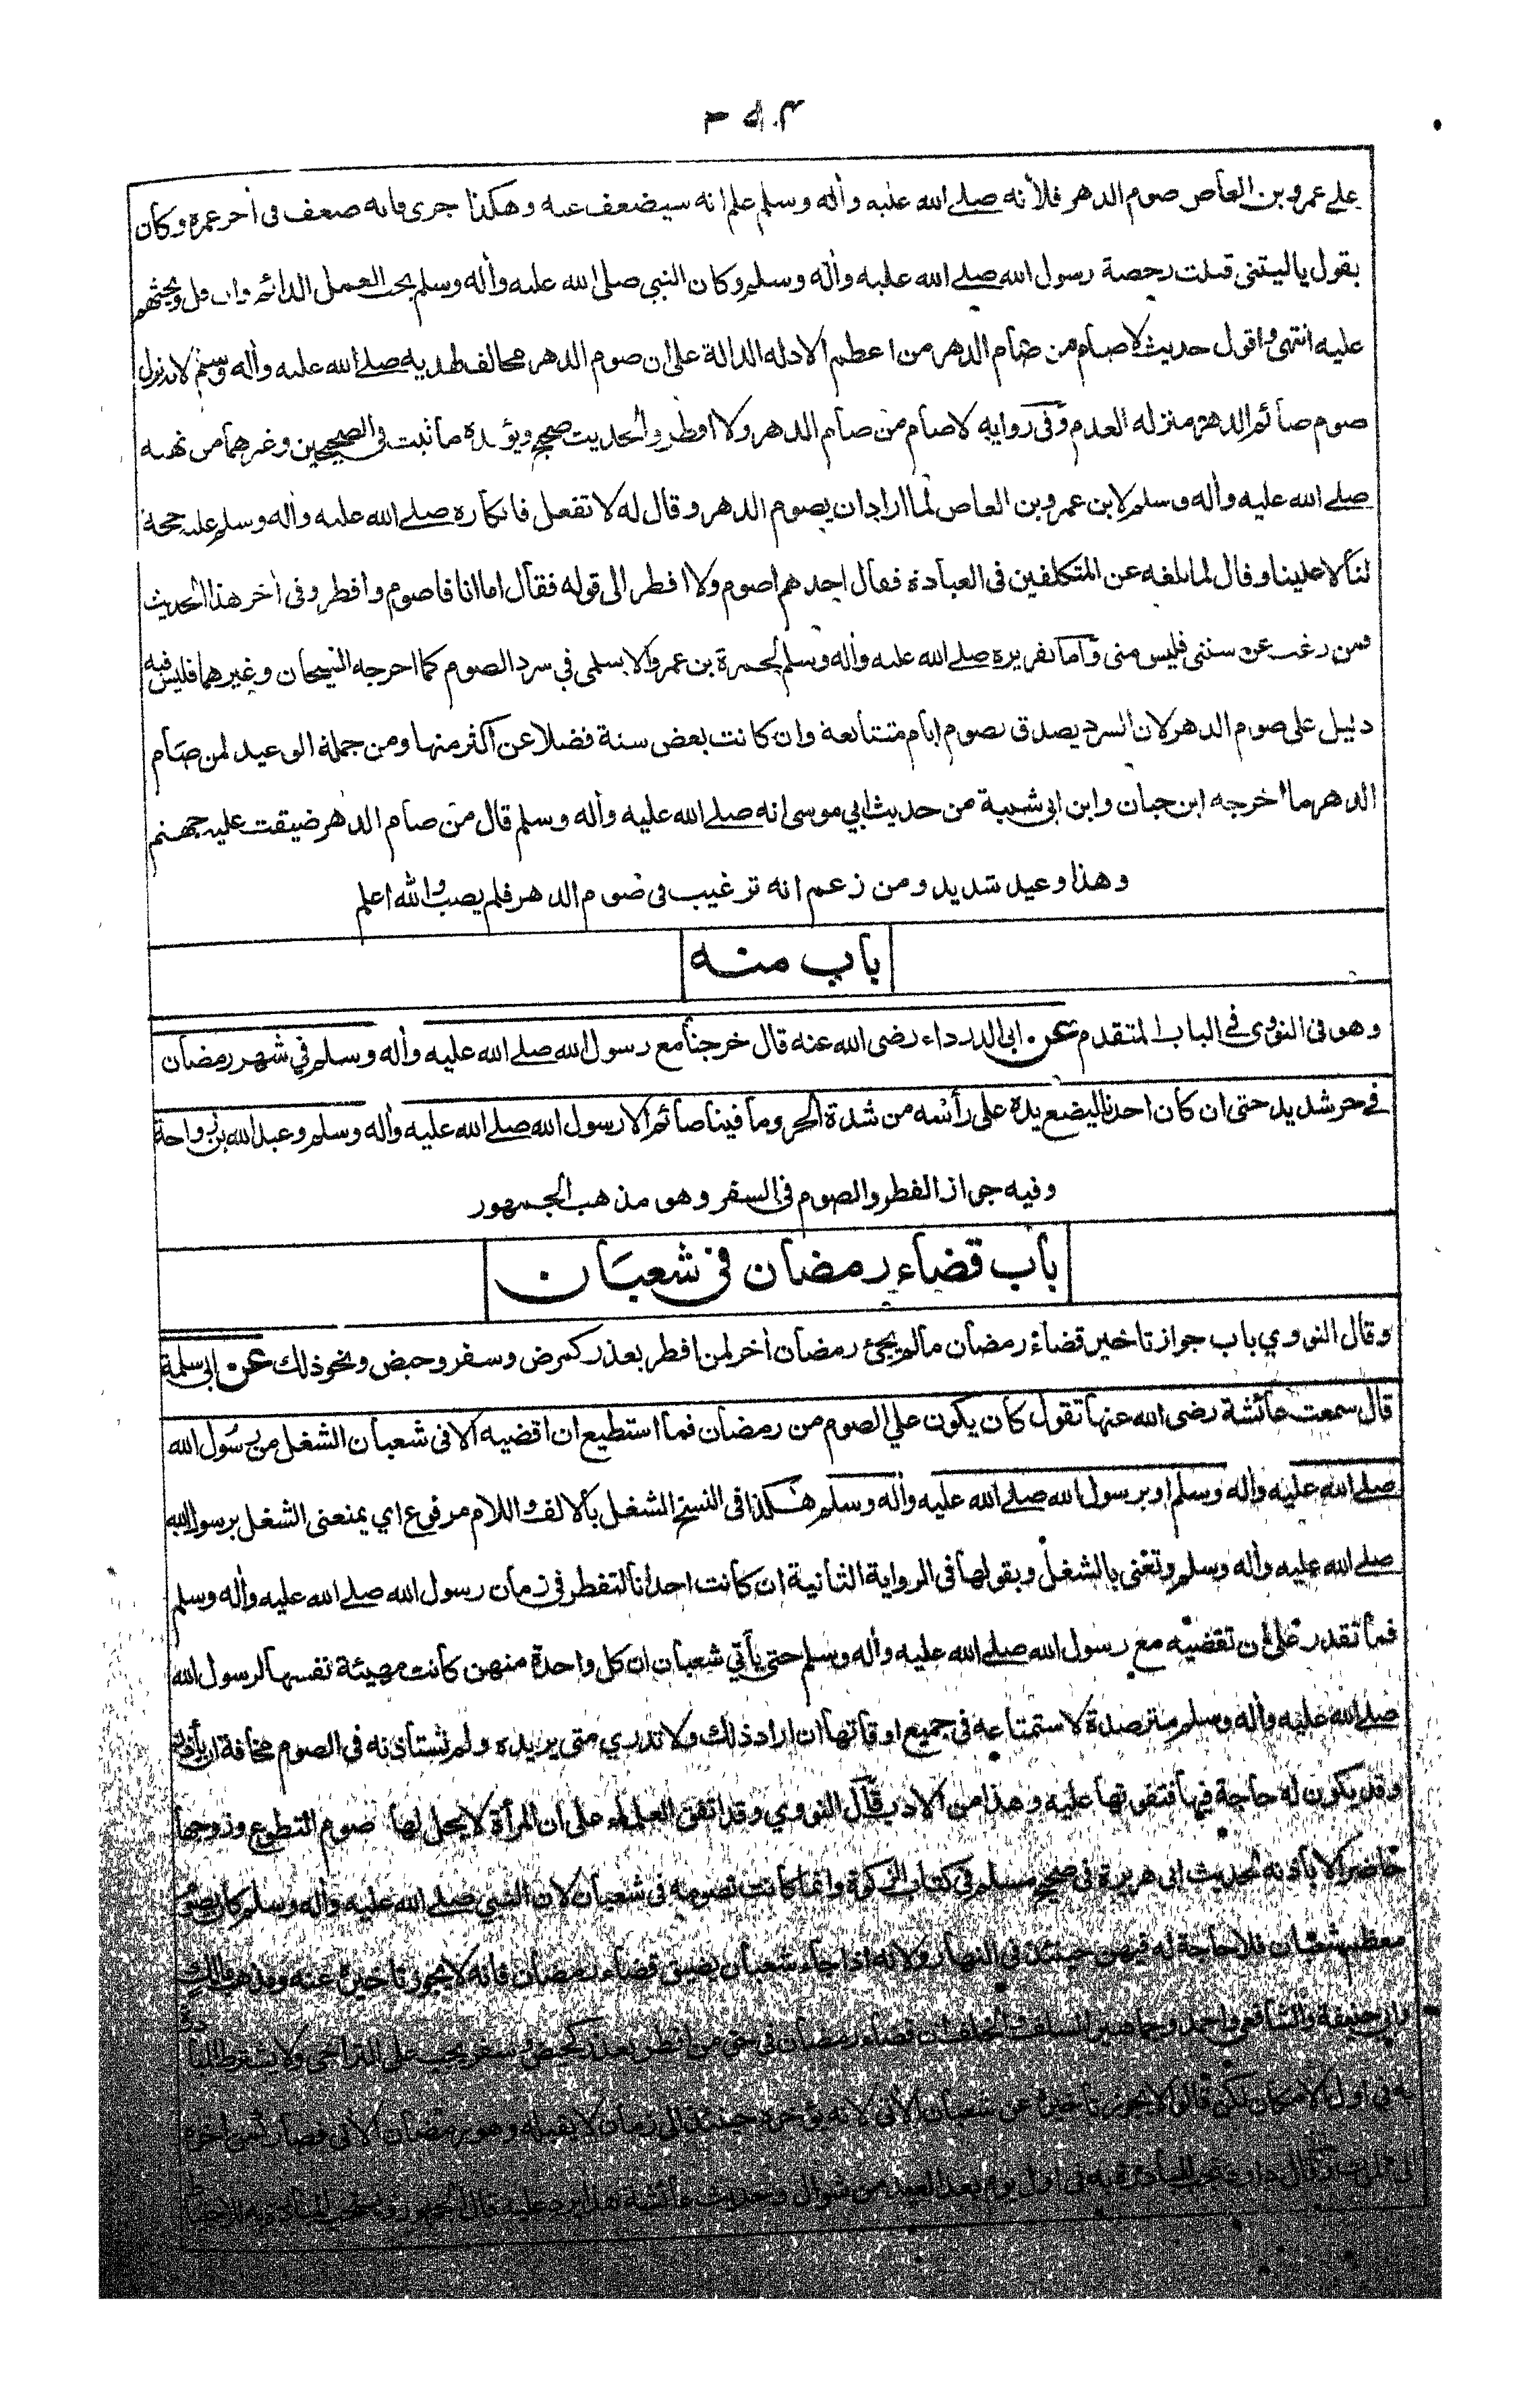 على عمرو بن العاص صوم الدهر فلأنه صلى الله عليه وأله وسلم علم انه سيضعف عنه وهكذا جرى فانه ضعف فى أخر عمره وكان
يقول ياليتنى قبلت رخصة رسول الله صلى الله عليه وأله وسلم وكان النبي صلى الله عليه وأله وسلم يحب العمل الدائم وان قل ويحثهم
عليه انتهى واقول حديث لاصام من صام الدهر من اعظم الادلة الدالة على ان صوم الدهر مخالف لهديه صلى الله عليه وأله وسلم لانه نزل
صوم صائم الدهر منزلة العدم وفى رواية لاصام من صام الدهر ولا افطر والحديث صحيح ويؤيده ما ثبت فى الصحيحين وغيرهما من نهيه
صلى الله عليه وأله وسلم لابن عمرو بن العاص لما اراد ان يصوم الدهر وقال له لا تفعل فانكاره صلى الله عليه وأله وسلم عليه حجة
لنا لا علينا وقال لما بلغه عن المتكلفين فى العبادة فقال احدهم اصوم ولا افطر الى قوله فقال اما انا فاصوم وافطر وفى أخر هذا الحديث
فمن رغب عن سنتى فليس منى وأما تقريره صلى الله عليه وأله وسلم لحمزة بن عمرو الاسلمى فى سرد الصوم كما اخرجه الشيخان وغيرهما فليس فيه
دليل على صوم الدهر لان السرد يصدق بصوم ايام متتابعة وان كانت بعض سنة فضلا عن اكثر منها ومن جملة الوعيد لمن صام
الدهر ما اخرجه ابن حبان وابن ابى شيبة من حديث ابي موسى انه صلى الله عليه وأله وسلم قال من صام الدهر ضيقت عليه جهنم
وهذا وعيد شديد ومن زعم انه ترغيب فى صوم الدهر فلم يصب والله اعلم
باب منه
وهو فى النووى فى الباب المتقدم عن ابى الدرداء رضى الله عنه قال خرجنا مع رسول الله صلى الله عليه وأله وسلم فى شهر رمضان
فى حر شديد حتى ان كان احدنا ليضع يده على رأسه من شدة الحر وما فينا صائم الا رسول الله صلى الله عليه وأله وسلم وعبد الله بن رواحة
وفيه جواز الفطر والصوم فى السفر وهو مذهب الجمهور
باب قضاء رمضان فى شعبان
وقال النووي باب جواز تاخير قضاء رمضان مالم يجئ رمضان أخر لمن افطر بعذر كمرض وسفر وحيض ونحو ذلك عن ابى سلمة
قال سمعت عائشة رضى الله عنها تقول كان يكون علي الصوم من رمضان فما استطيع ان اقضيه الا فى شعبان الشغل من رسول الله
صلى الله عليه وأله وسلم او برسول الله صلى الله عليه وأله وسلم هكذا فى النسخ الشغل بالالف واللام مرفوع اي يمنعنى الشغل برسول الله
صلى الله عليه وأله وسلم وتعنى بالشغل وبقولها فى الرواية الثانية ان كانت احدانا لتفطر فى زمان رسول الله صلى الله عليه وأله وسلم
فما تقدر على ان تقضيه مع رسول الله صلى الله عليه وأله وسلم حتى يأتي شعبان ان كل واحدة منهن كانت مهيئة نفسها لرسول الله
صلى الله عليه وأله وسلم مترصدة لاستمتاعه فى جميع اوقاتها ان اراد ذلك ولا تدري متى يريده ولم تستأذنه فى الصوم مخافة ان يأذن
وقد يكون له حاجة فيها فتفوتها عليه وهذا من الادب قال النووي وقد اتفق العلماء على ان المرأة لا يحل لها صوم التطوع وزوجها
حاضر الا باذنه لحديث ابى هريرة فى صحيح مسلم فى كتاب الزكوة وانما كانت تصومه فى شعبان لان النبي صلى الله عليه وأله وسلم كان يصوم
معظم شعبان فلا حاجة له فيهن حينئذ فى النهار ولانه اذا جاء شعبان يضيق قضاء رمضان فانه لا يجوز تاخيره عنه ومذهب مالك
وابى حنيفة والشافعى واحمد وجماهير السلف والخلف ان قضاء رمضان فى حق من افطر بعذر كحيض وسفر يجب على التراخى ولا يشترط المبادرة
به فى اول الامكان لكن قالوا لا يجوز تأخيره عن شعبان الأتى لانه يؤخره حينئذ الى زمان لا يقبله وهو رمضان الأتى فصار كمن اخره
الى الموت وقال داود تجب المبادرة به فى اول يوم بعد العيد من شوال وحديث عائشة هذا يرد عليه قال الجمهور ويستحب المبادرة به للاحتياط